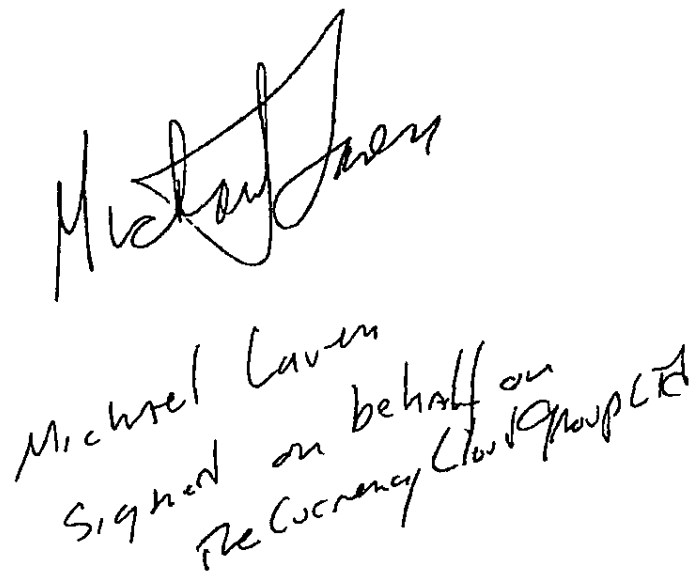 Michael Laven
Michael Laven
Signed on behalf on
The Currency Cloud Group Ltd